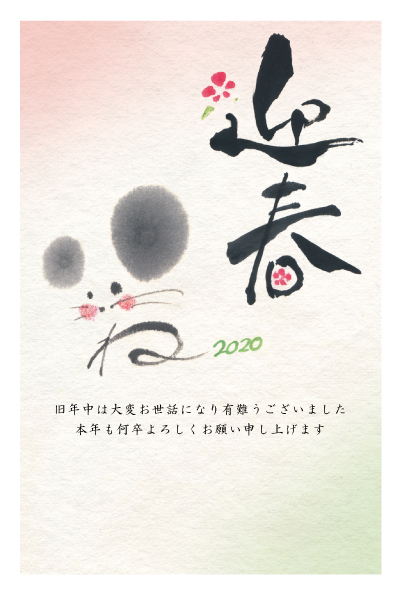 迎春
ね
2020
旧年中は大変お世話になり有難うございました
本年も何卒よろしくお願い申し上げます